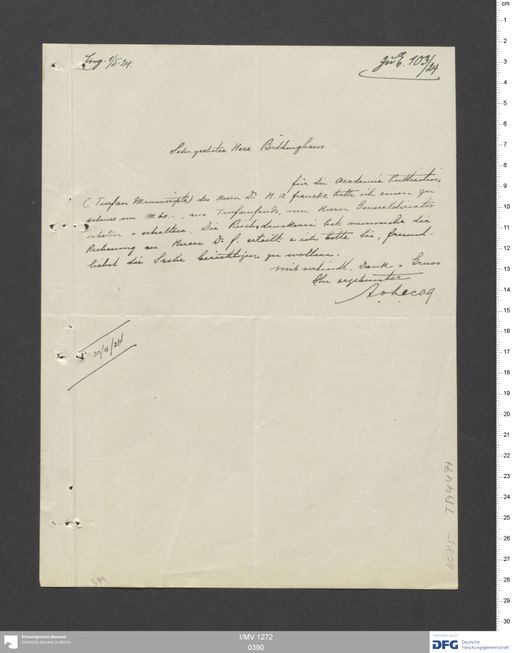 Eing. 9/5.24.
Zu E. 103/24
Sehr geehrter Herr Büddinghaus
für die Academie Publication
(Turfan Manuscripte) des Herrn Dr. A. H. Francke hatte ich einen
M 60.- aus Turfanfonds, von Herrn Generaldirector
erbeten & erhalten. Die Reichsdruckerei hat nunmehr die
Rechnung an Herrn Dr. F. erteilt & ich bitte Sie, freund-
lichst die Sache berichtigen zu wollen.
mit verbindl. Dank & Gruss
Ihr ergebenster
A.v.Lecoq
29/4/24
379
I/MV 1272
0390
Ethnologisches Museum
Staatliche Museen zu Berlin
DFG Deutsche
Forschungsgemeinschaft
cm
1
2
3
4
5
6
7
8
9
10
11
12
13
14
15
16
17
18
19
20
21
22
23
24
25
26
27
28
29
30